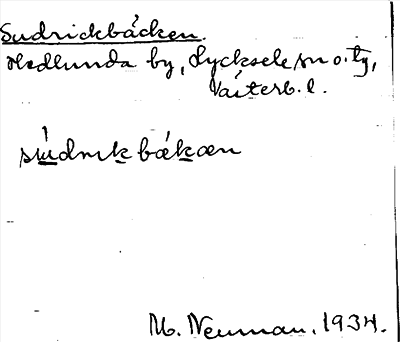 Sudrickbäcken.
Hedlunda by, Lycksele sn o. tg,
Västerb. l.
sùdrıkbäkæn
M. Neuman. 1934.